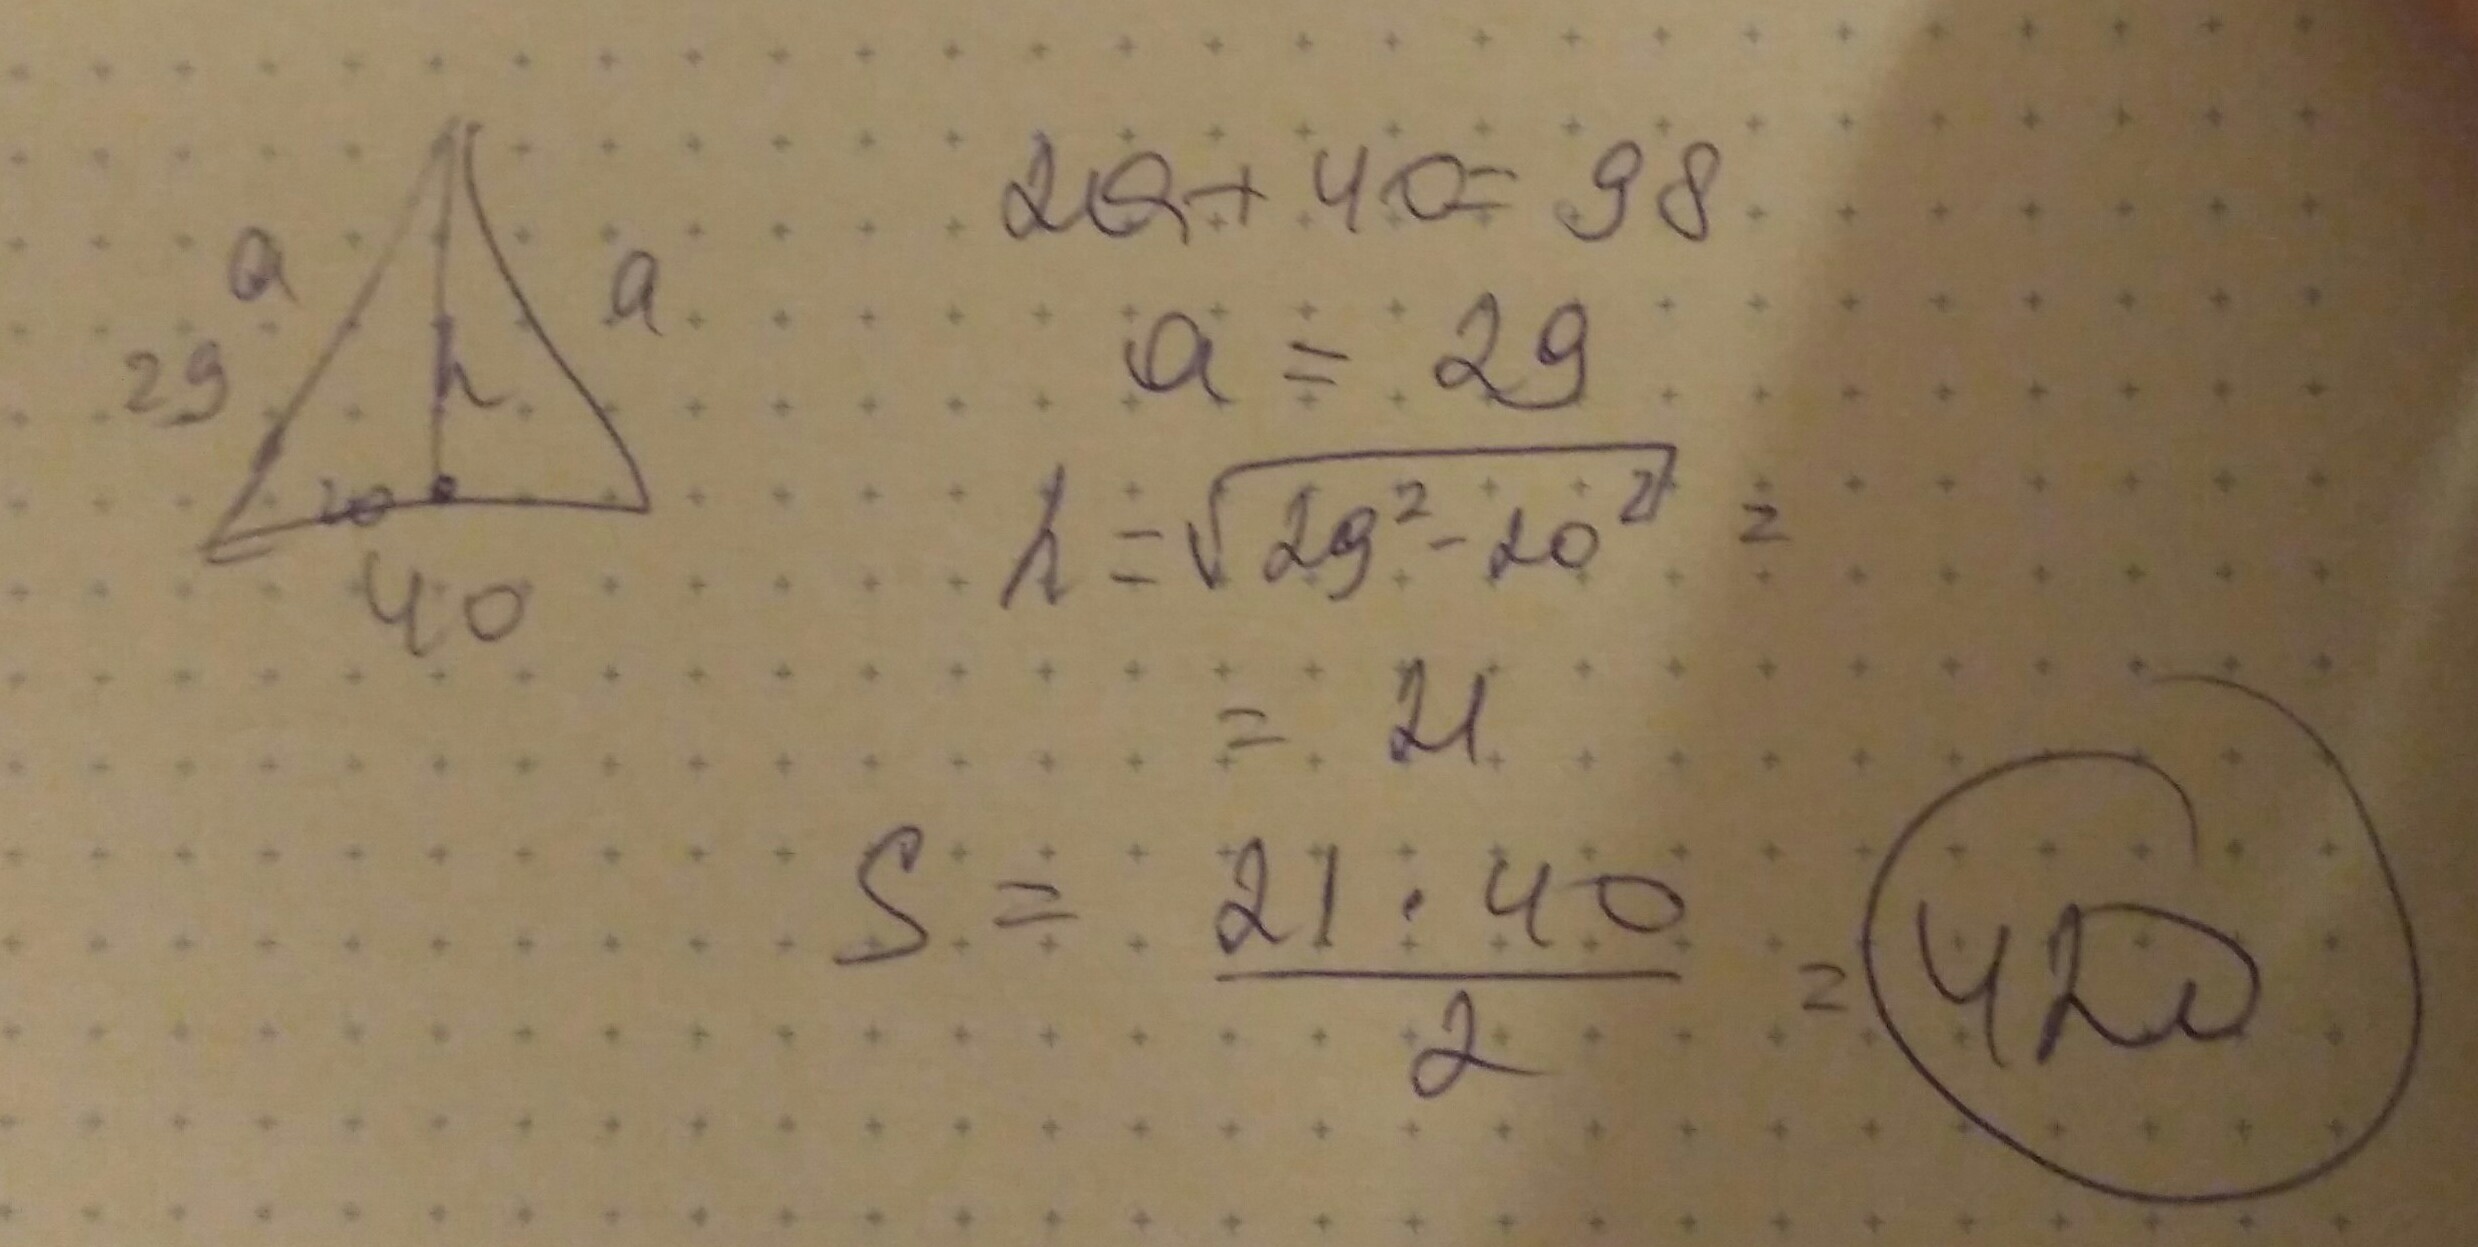 a
a
29
h
20
40
2a + 40 = 98
a = 29
h = √29² - 20² =
= 21
S = 21 · 40 / 2 = 420